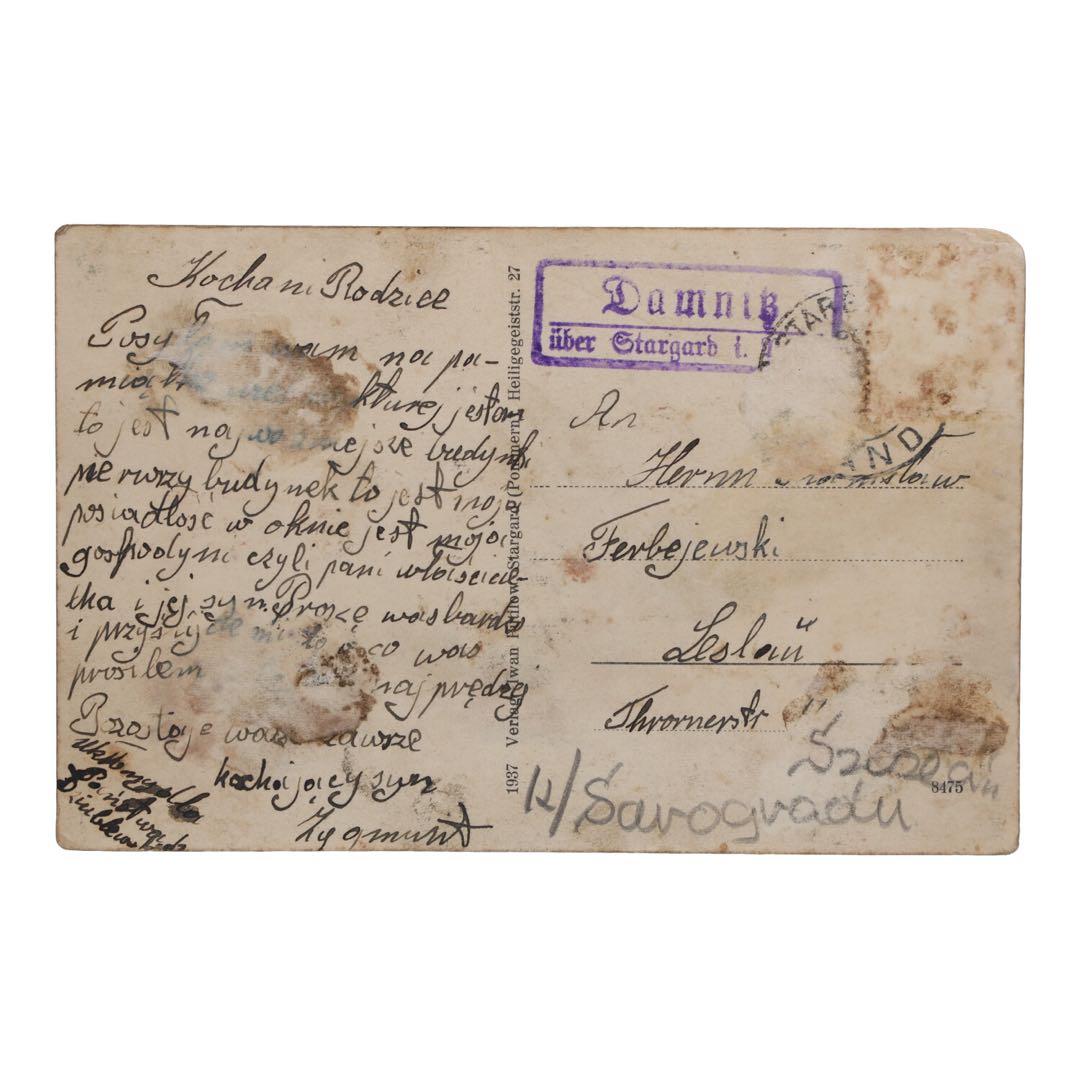 Kochani Rodzice
Posyłam wam na pa-
kturej jestem
to jest najważniejsze budynki
pierwrzy budynek to jest moja
posiadłość w oknie jest moja
gospodyni czyli pani właściciel-
ka i jej syn Proszę was bardzo
i przyślijcie mi to co was
prosiłem najprędzej
Pozostaje wasz zawsze
kochający syn
Zygmunt
1937 Verlag: Iwan Stargard (Pommern) Heiligegeiststr. 27
Damnitz
über Stargard i.
STARG
An
Herrn
Ferbejewski
Leslau
Thrornerstr
8475
k/Sarogradu